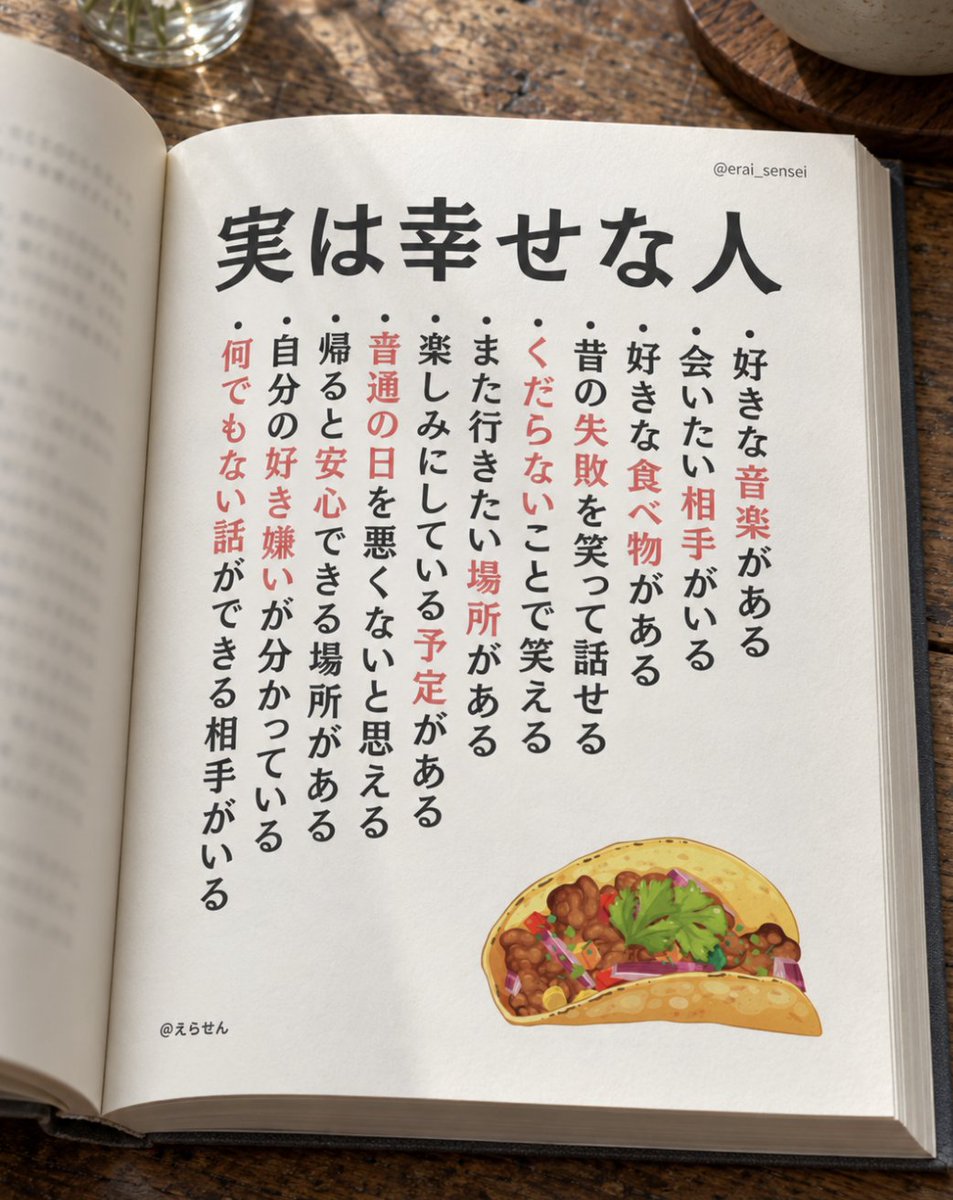 @erai_sensei
実は幸せな人
・好きな音楽がある
・会いたい相手がいる
・好きな食べ物がある
・昔の失敗を笑って話せる
・くだらないことで笑える
・また行きたい場所がある
・楽しみにしている予定がある
・音通の日を悪くないと思える
・帰ると安心できる場所がある
・自分の好き嫌いが分かっている
・何でもない話ができる相手がいる
@えらせん